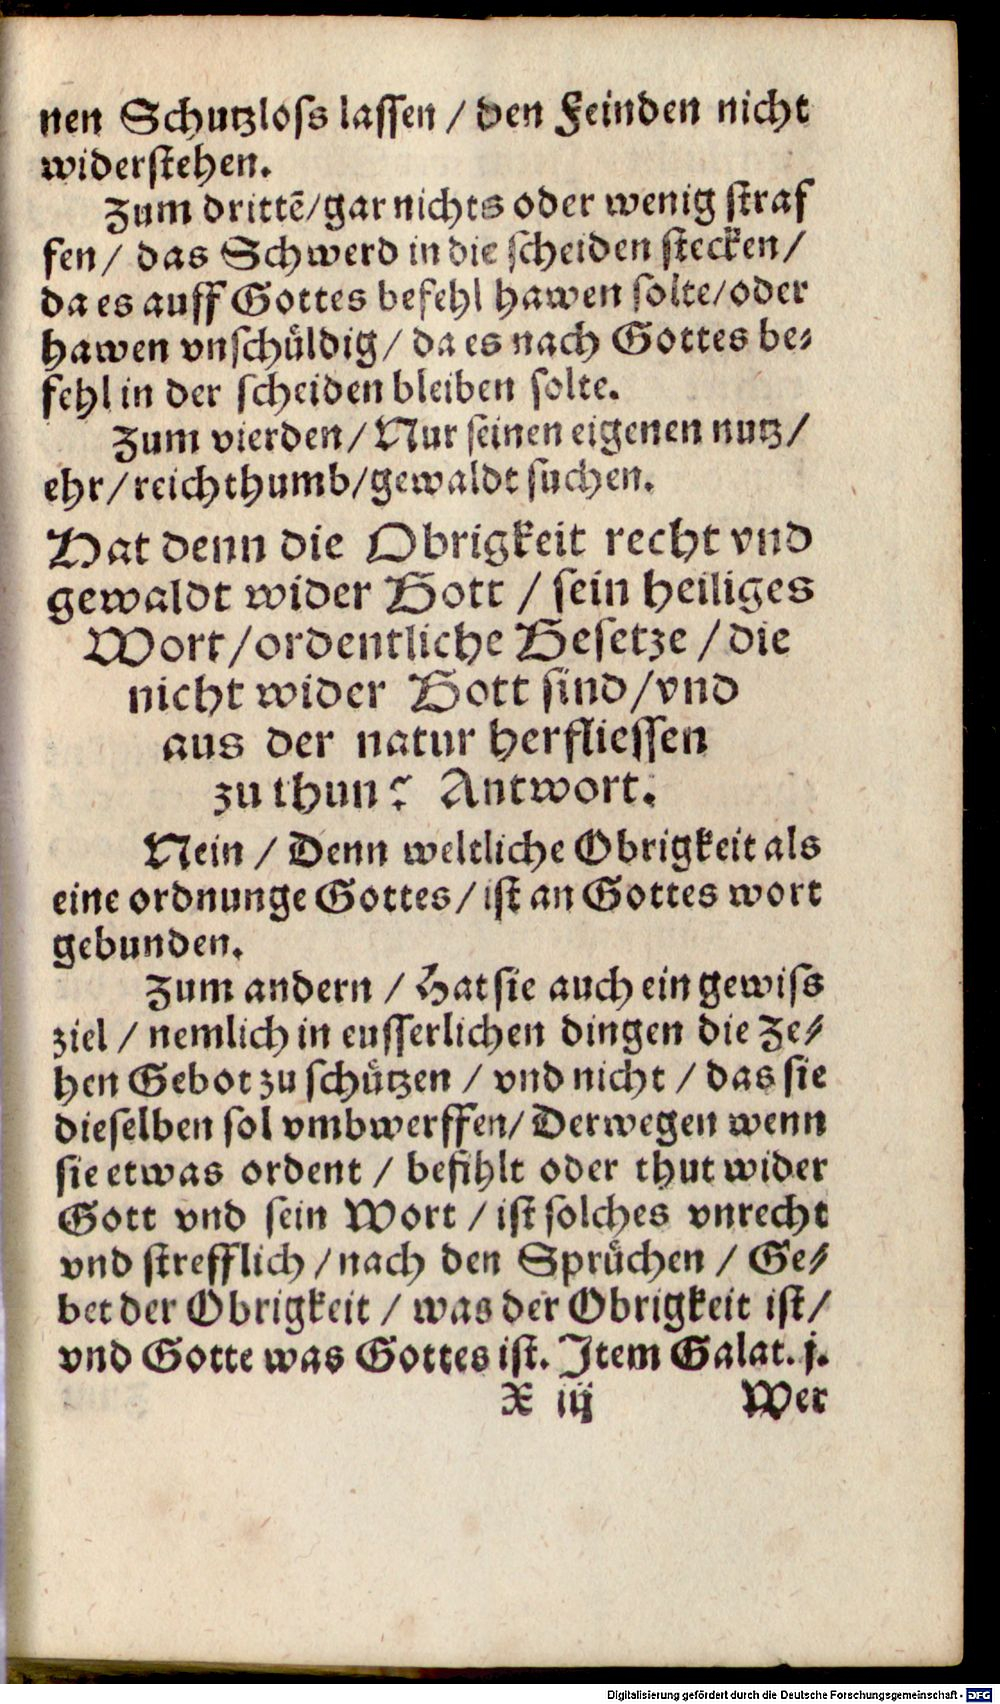 nen Schutzloss lassen / den Feinden nicht
widerstehen.
Zum drittē/gar nichts oder wenig straf
fen/ das Schwerd in die scheiden stecken/
da es auff Gottes befehl hawen solte/oder
hawen vnschüldig/ da es nach Gottes be⸗
fehl in der scheiden bleiben solte.
Zum vierden/ Nur seinen eigenen nutz/
ehr/reichthumb/gewaldt suchen.
Hat denn die Obrigkeit recht vnd
gewaldt wider Gott / sein heiliges
Wort/ordentliche Gesetze / die
nicht wider Gott sind/vnd
aus der natur herfliessen
zu thun? Antwort.
Nein / Denn weltliche Obrigkeit als
eine ordnunge Gottes/ ist an Gottes wort
gebunden.
Zum andern / Hat sie auch ein gewiss
ziel / nemlich in eusserlichen dingen die Ze⸗
hen Gebot zu schützen / vnd nicht / das sie
dieselben sol vmbwerffen/ Derwegen wenn
sie etwas ordent / befihlt oder thut wider
Gott vnd sein Wort / ist solches vnrecht
vnd strefflich / nach den Sprüchen / Ge⸗
bet der Obrigkeit / was der Obrigkeit ist/
vnd Gotte was Gottes ist. Item Galat. j.
X iij Wer
Digitalisierung gefördert durch die Deutsche Forschungsgemeinschaft - DFG